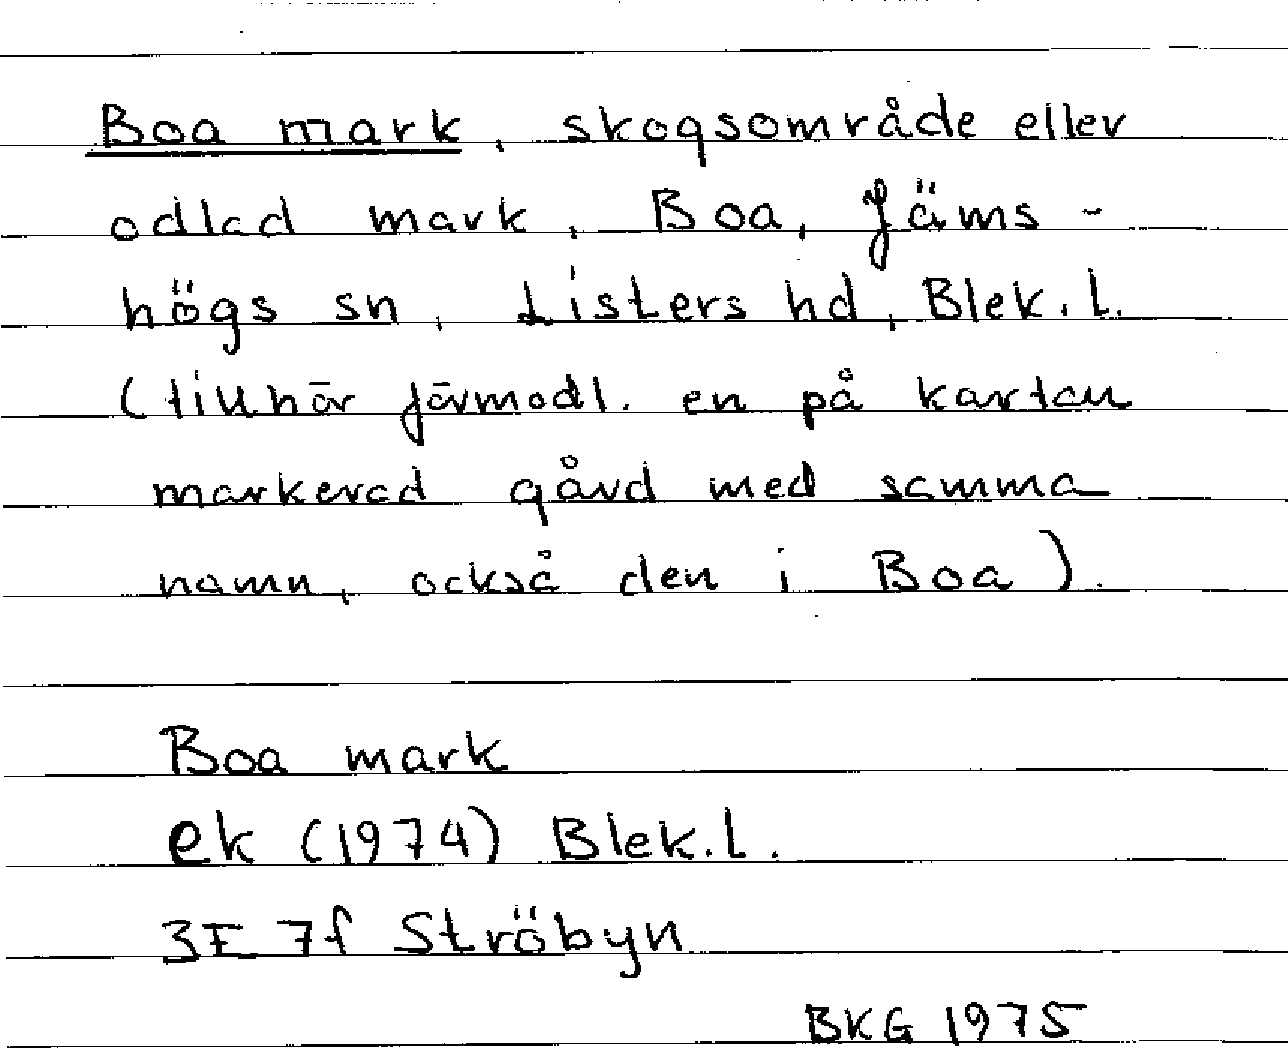 Boa mark, skogsområde eller
odlad mark, Boa, Jäms-
högs sn, Listers hd, Blek. l.
(tillhör förmodl. en på kartan
markerad gård med samma
namn, också den i Boa).
Boa mark
ek (1974) Blek. l.
3E 7f Ströbyn
BKG 1975